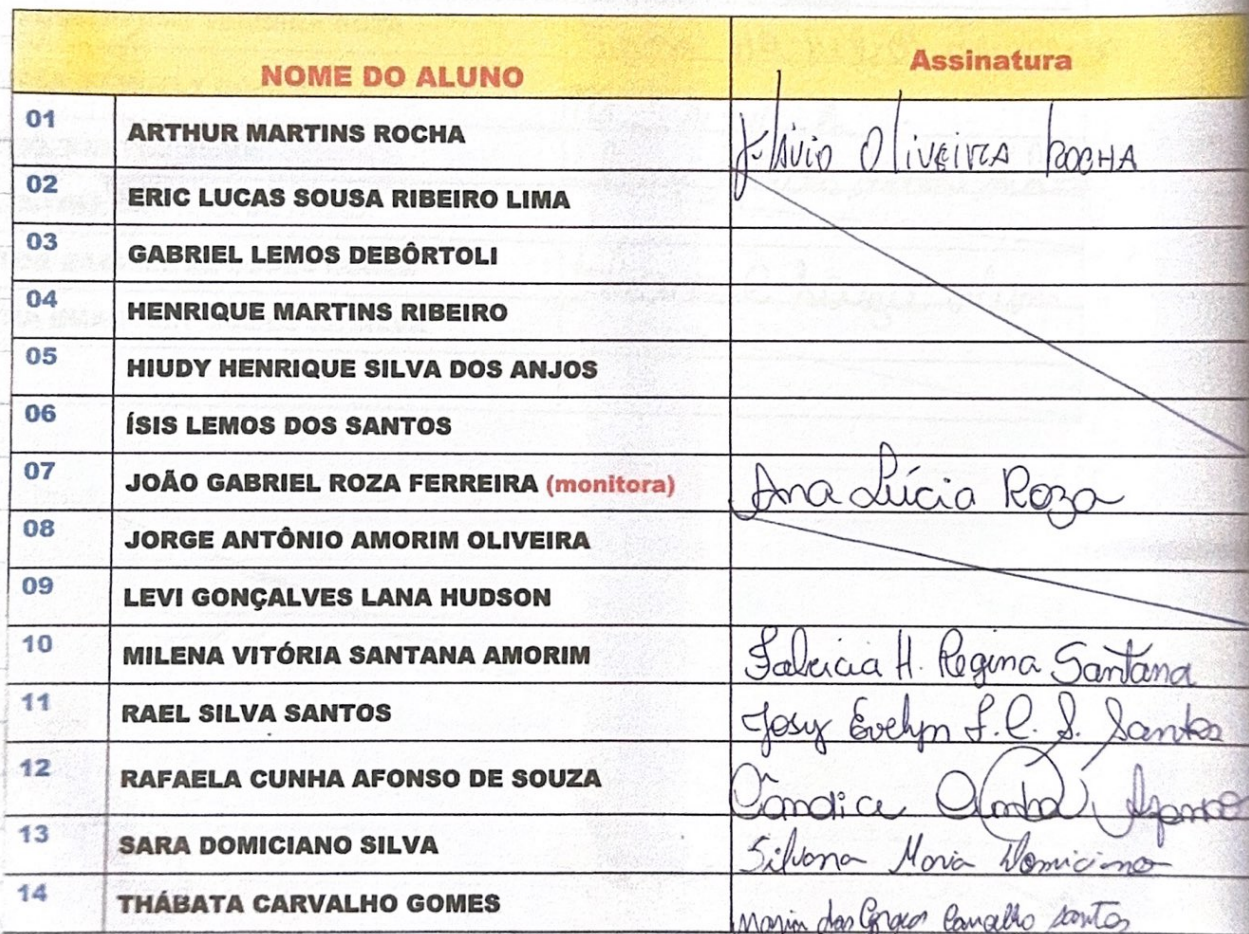 NOME DO ALUNO Assinatura
01 ARTHUR MARTINS ROCHA Flávio Oliveira Rocha
02 ERIC LUCAS SOUSA RIBEIRO LIMA
03 GABRIEL LEMOS DEBÔRTOLI
04 HENRIQUE MARTINS RIBEIRO
05 HIUDY HENRIQUE SILVA DOS ANJOS
06 ÍSIS LEMOS DOS SANTOS
07 JOÃO GABRIEL ROZA FERREIRA (monitora) Ana Lúcia Roza
08 JORGE ANTÔNIO AMORIM OLIVEIRA
09 LEVI GONÇALVES LANA HUDSON
10 MILENA VITÓRIA SANTANA AMORIM Fabricia H. Regina Santana
11 RAEL SILVA SANTOS Josy Evelyn S. Santos
12 RAFAELA CUNHA AFONSO DE SOUZA Cândice Cunha Afonso
13 SARA DOMICIANO SILVA Silvana Maria Domiciano
14 THÁBATA CARVALHO GOMES Maria das Graças Carvalho Santos